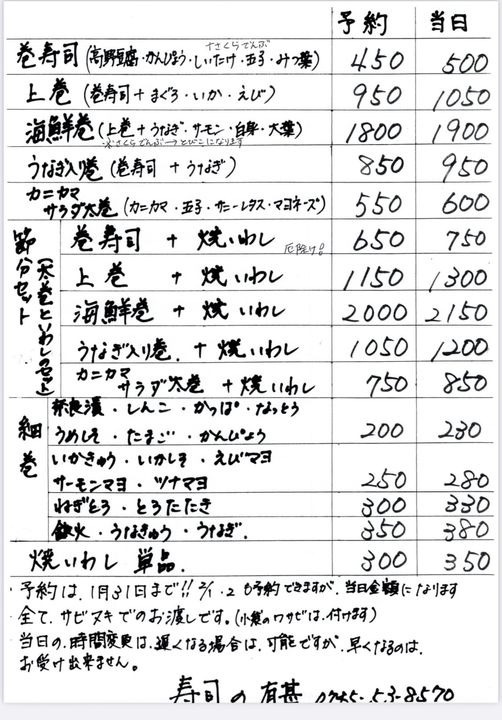 予約 当日
巻寿司(高野豆腐・かんぴょう・しいたけ・玉子・みつ葉) 450 500
+さくらでんぶ
上巻(巻寿司+まぐろ・いか・えび) 950 1050
海鮮巻(上巻+うなぎ・サーモン・白身・大葉) 1800 1900
※さくらでんぶ→とびこになります
うなぎ入り巻(巻寿司+うなぎ) 850 950
カニカマ
サラダ太巻(カニカマ・玉子・サニーレタス・マヨネーズ) 550 600
節分セット(太巻といわしのセット)
巻寿司 + 焼いわし 650 750
厄除け!
上巻 + 焼いわし 1150 1300
海鮮巻 + 焼いわし 2000 2150
うなぎ入り巻 + 焼いわし 1050 1200
カニカマ
サラダ太巻 + 焼いわし 750 850
細巻
奈良漬・しんこ・かっぱ・なっとう
うめしそ・たまご・かんぴょう 200 230
いかきゅう・いかしそ・えびマヨ
サーモンマヨ・ツナマヨ 250 280
ねぎとろ・とろたたき 300 330
鉄火・うなきゅう・うなぎ. 350 380
焼いわし 単品. 300 350
・予約は、1月31日まで!! 2/1・2も予約できますが、当日金額になります
・全て、サビヌキでのお渡しです。(小袋のワサビは、付けます)
・当日の、時間変更は、遅くなる場合は、可能ですが、早くなるのは、
お受け出来ません。
寿司の有甚 0745-53-8570